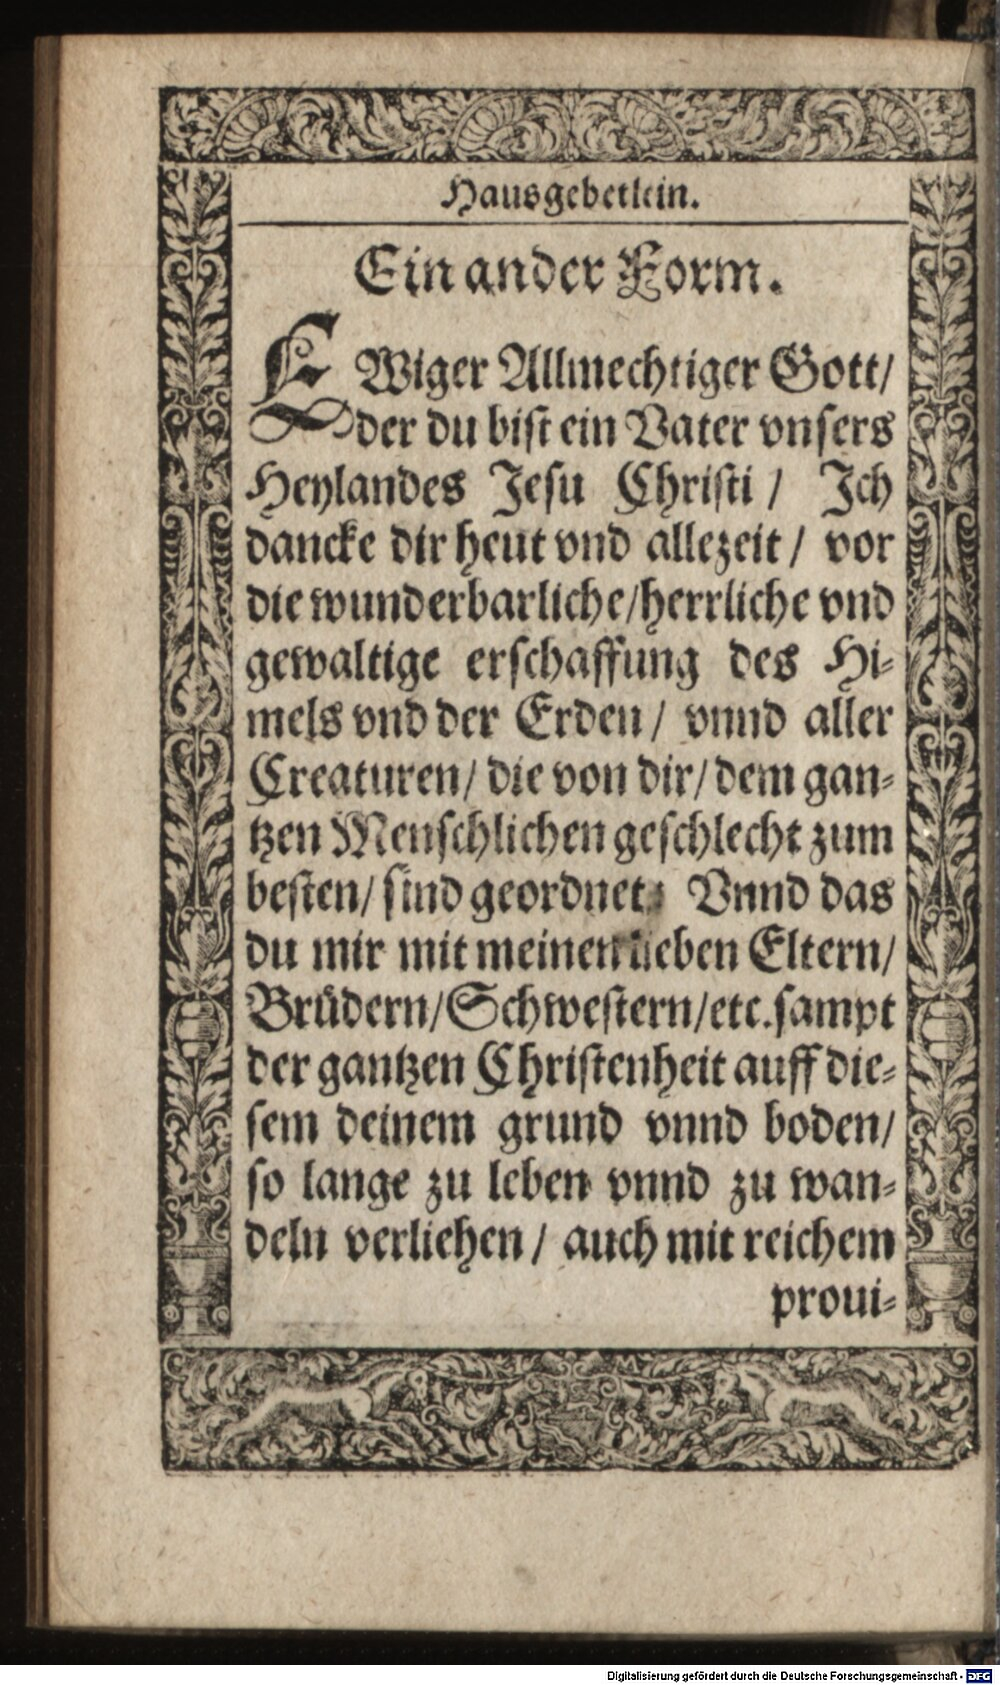 Hausgebetlein.
Ein ander Form.
EWiger Allmechtiger Gott/
der du bist ein Vater vnsers
Heylandes Jesu Christi / Ich
dancke dir heut vnd allezeit / vor
die wunderbarliche/herrliche vnd
gewaltige erschaffung des Hi-
mels vnd der Erden / vnnd aller
Creaturen/ die von dir/ dem gan-
tzen Menschlichen geschlecht zum
besten/ sind geordnet: Vnnd das
du mir mit meinen lieben Eltern/
Brüdern/Schwestern/etc.sampt
der gantzen Christenheit auff die-
sem deinem grund vnnd boden/
so lange zu leben vnnd zu wan-
deln verliehen / auch mit reichem
proui-
Digitalisierung gefördert durch die Deutsche Forschungsgemeinschaft - DFG